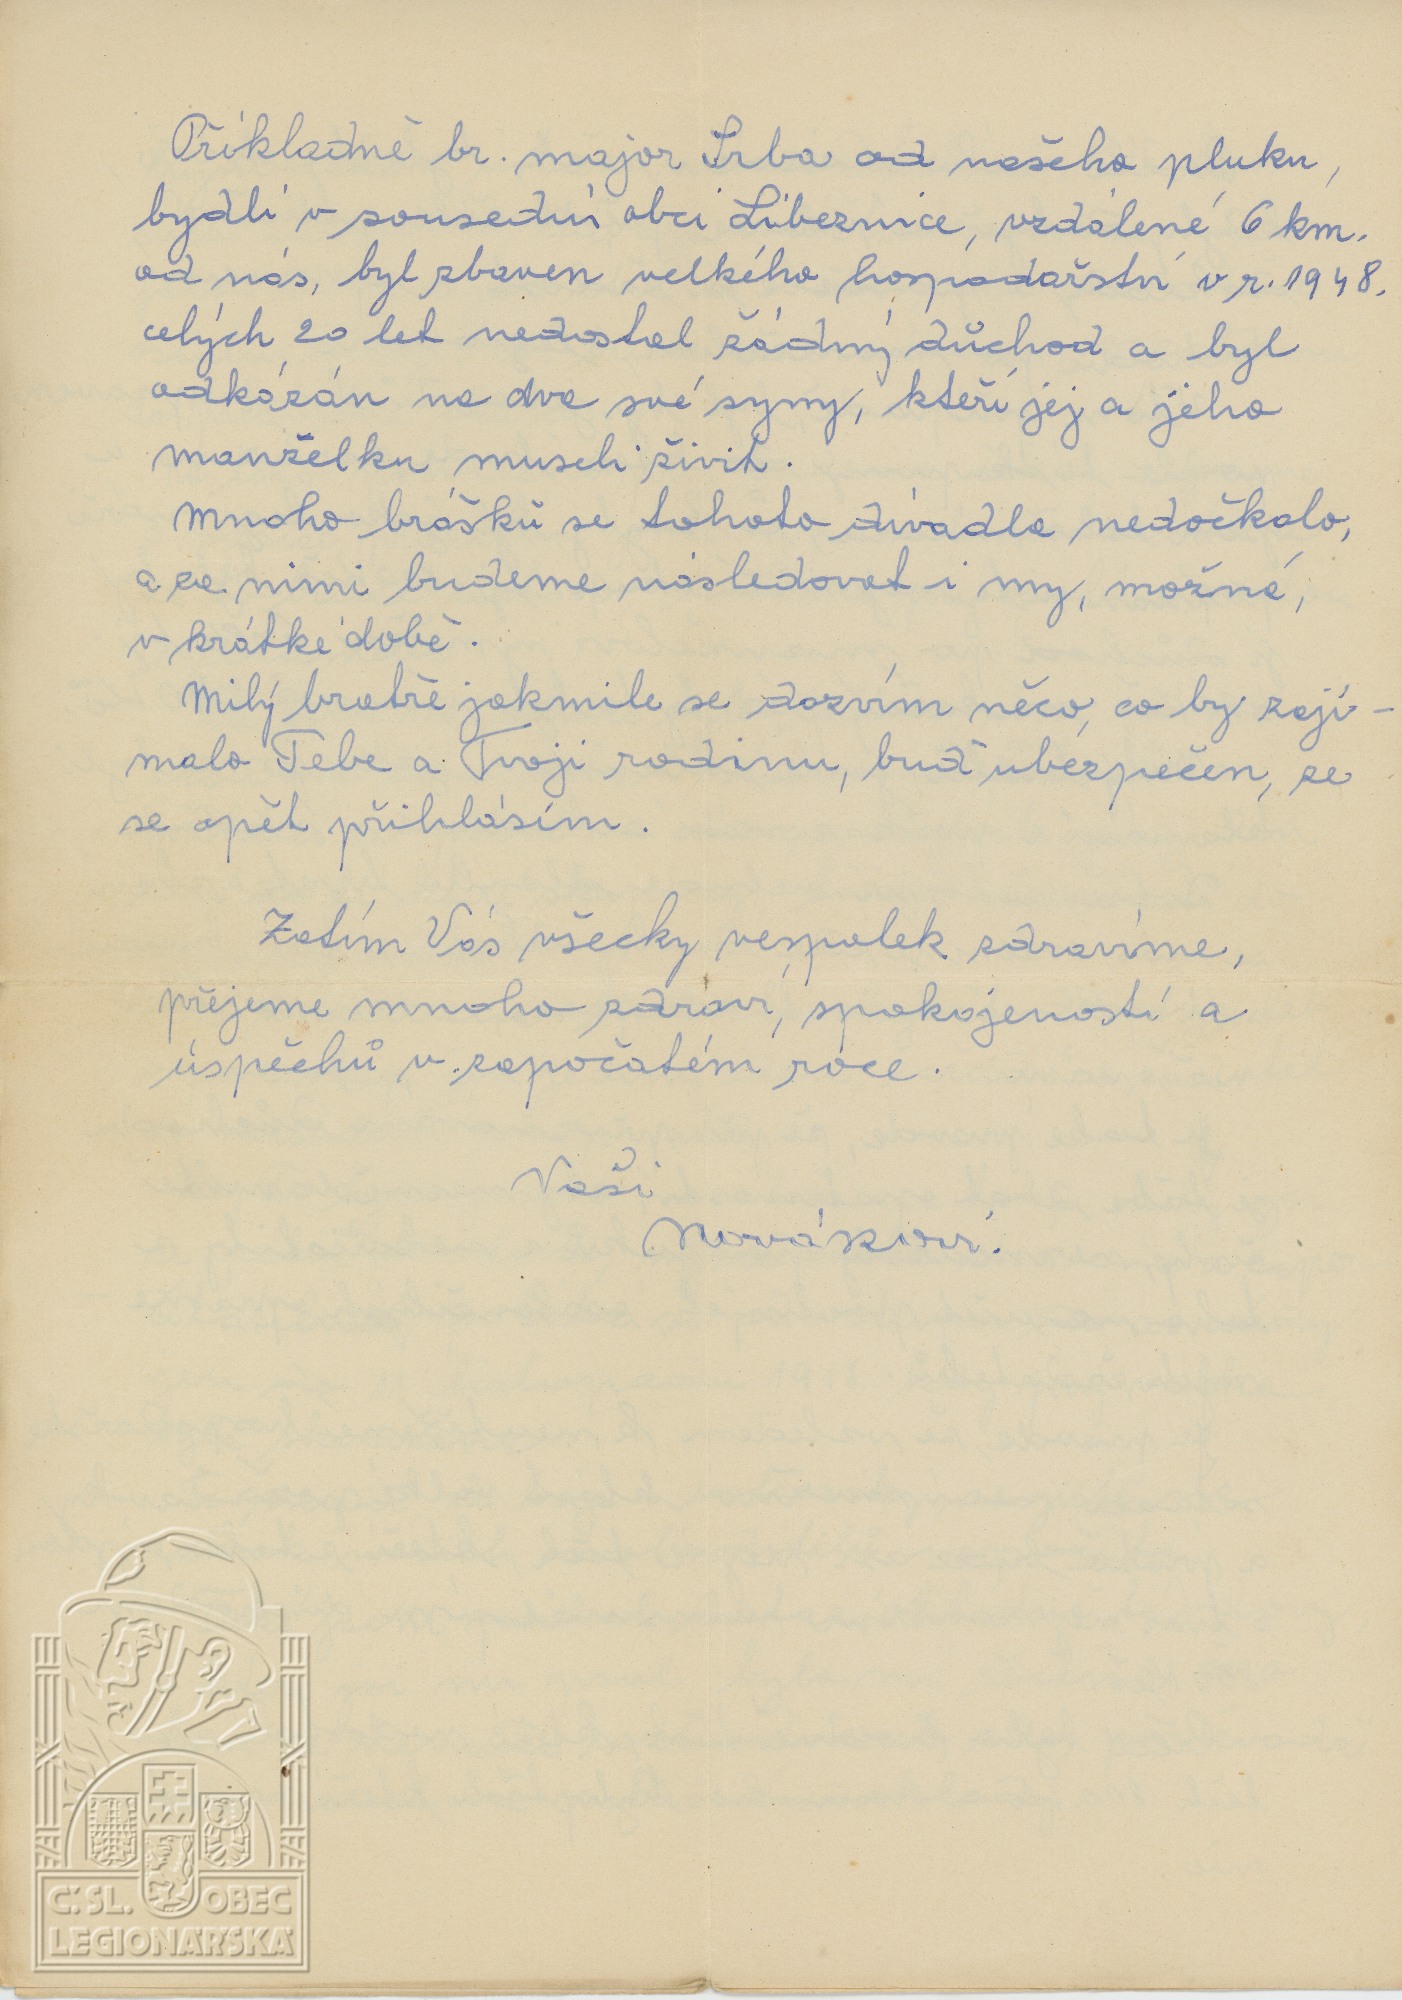 Příkladně br. major Srba od našeho pluku,
bydlí v sousední obci Líbeznice, vzdálené 6 km.
od nás, byl zbaven velkého hospodařství v r. 1948.
celých 20 let nedostal žádný důchod a byl
odkázán na dva své syny, kteří jej a jeho
manželku museli živit.
Mnoho brášků se tohoto divadla nedočkalo,
a za nimi budeme následovat i my, možná,
v krátké době.
Milý bratře jakmile se dozvím něco, co by zají-
malo Tebe a Tvoji rodinu, buď ubezpečen, že
se opět přihlásím.
Zatím Vás všecky vespolek zdravíme,
přejeme mnoho zdraví, spokojenosti a
úspěchů v započatém roce.
Vaši
Novákovi.
Č.SL. OBEC
LEGIONÁŘSKÁ